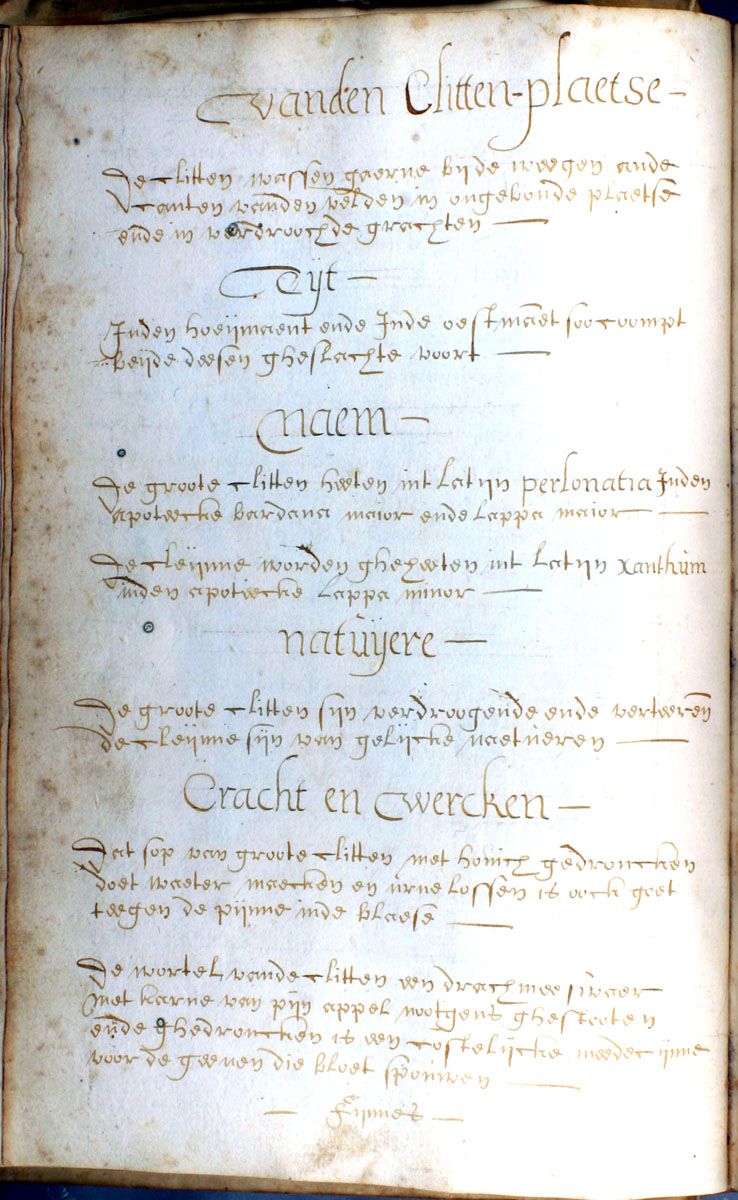 vanden Clitten-plaetse –
De clitten wassen gaerne bij de weegen ande
canten vanden velden in ongebonde plaetsē
ende in verdroochde grachten —
Tijt –
Inden hoeijmaent ende Inde oestmaēt soo coompt
beijde deesen gheslachte voort —
naem –
De groote clitten heeten int latijn personatia Inden
apoteecke bardana maior ende lappa maior —
De cleijnne worden gheheeten int latijn xanthūm
inden apoteecke lappa minor —
natūijere —
De groote clitten sijn verdroogende ende verteerēn
de cleijnne sijn van gelijcke naetueren —
Cracht en wercken –
Dat sop van groote clitten met honich gedroncken
doet waeter maecken en urne lossen is oock goet
teegen de pijnne inde blaese —
De wortel vande clitten een drachmee swaer
met karne van pijn appel nootgens ghestooten
ende ghedroncken is een costelijcke meedecijnne
voor de geenen die bloet spouwen —
– Fijnnes –